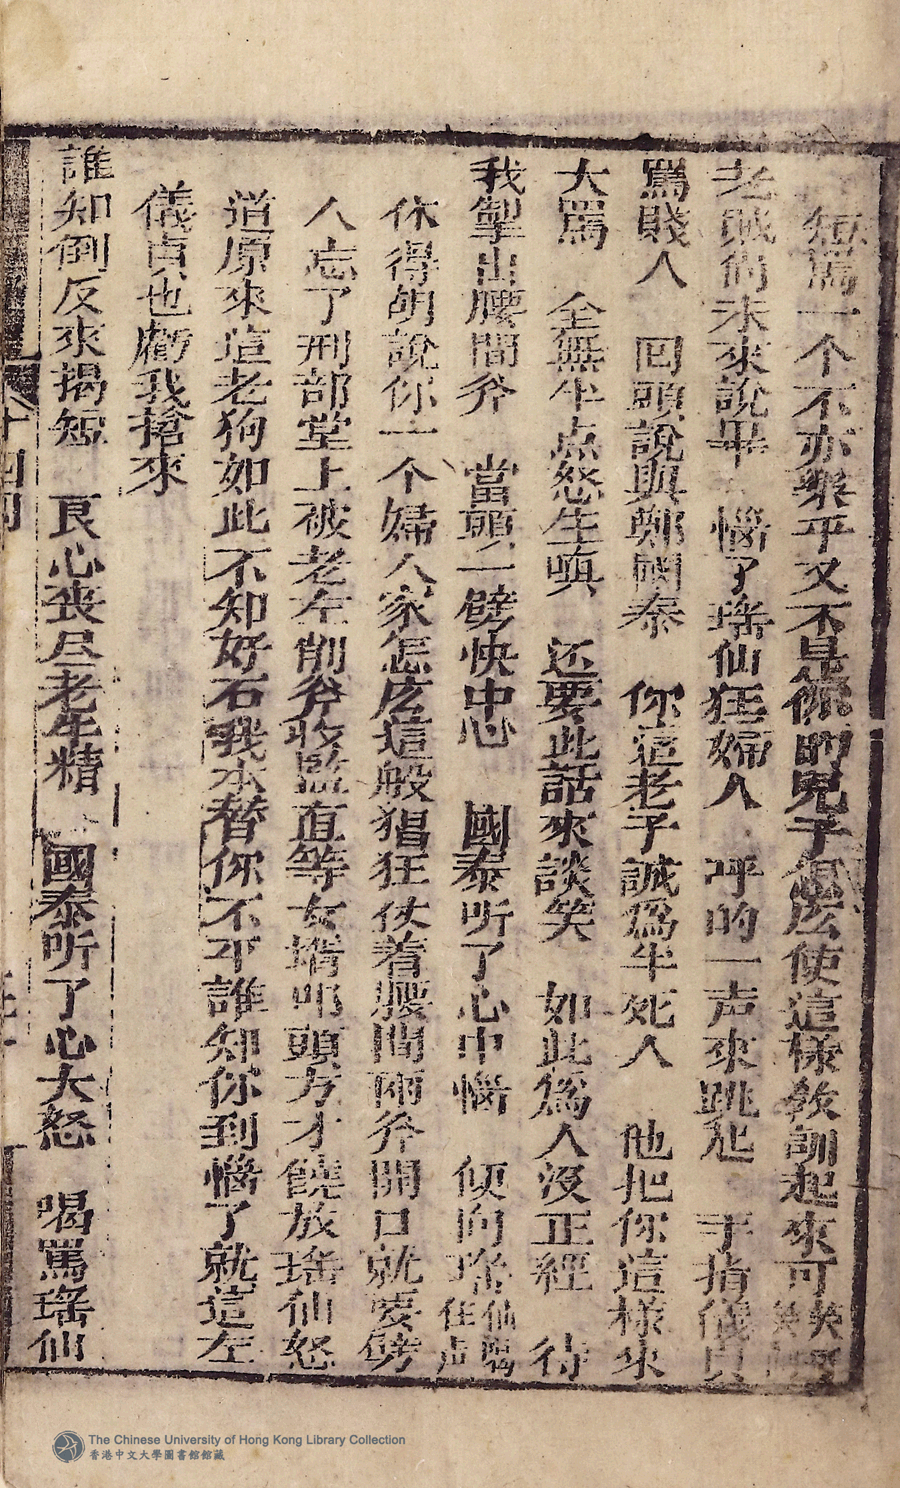 短罵一个不亦樂乎又不是你的兒子怎庅使這樣教訓起來可
老賊尚未來說畢　惱了瑤仙狂婦人　呼的一声來跳起　手指儀貞
罵賤人　回頭說與鄭國泰　你這老子誠爲半死人　他把你這樣來
大罵　全無半点怒生嗔　还要此話來談笑　如此爲人沒正經　待
我掣出腰間斧　當頭一劈快中心　國泰听了心中惱　便向瑤仙喝住声
休得胡說你一个婦人家怎庅這般猖狂仗着腰間兩斧開口就要劈
人忘了刑部堂上被老左削斧收監直等女壻叩頭方才饒放瑤仙怒
道原來這老狗如此不知好歹我本替你不平誰知你到惱了就這左
儀貞也虧我搶來
誰知倒反來揭短　良心丧尽老牛精　國泰听了心大怒　喝罵瑤仙
十四
The Chinese University of Hong Kong Library Collection
香港中文大學圖書館館藏